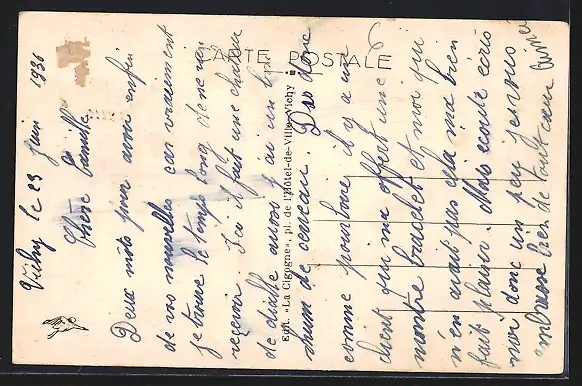 CARTE POSTALE
Edit. «La Cigogne», pl. de l'Hôtel-de-Ville, Vichy
Vichy le 23 juin 1931
Chère famille
Deux mots pour avoir enfin
de vos nouvelles car vraiment
je trouve le temps long de ne rien
reçevoir. Ici il fait une chaleur
de diable aussi j'ai un bon
rhum de cerveau. Dis donc
comme pourboire il y a une
client qui m'a offert une
montre bracelet et moi qui
n'en avait pas cela m'a bien
fait plaisir. Mais écris
moi donc un peu je vous
embrasse bien de tout cœur